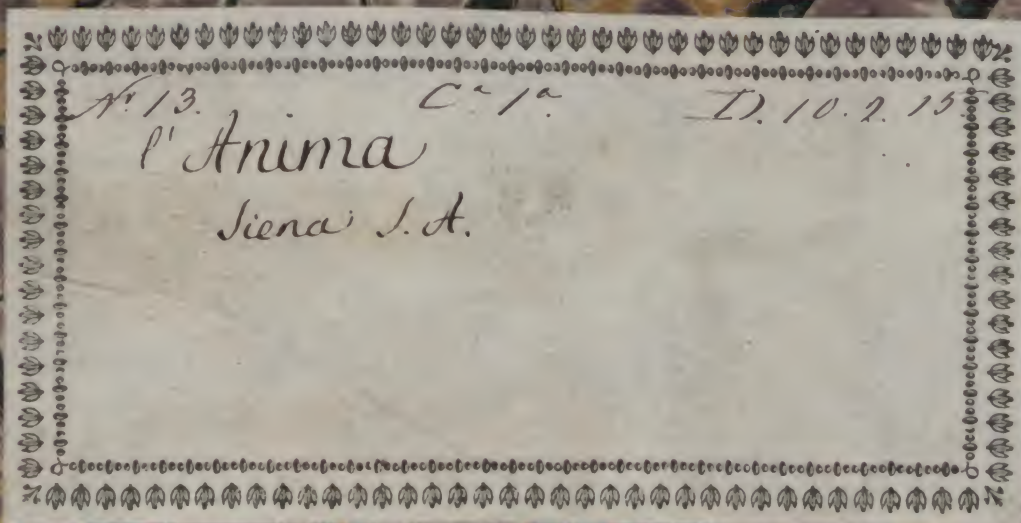 Nº 13. Cª 1ª. D. 10. 2. 15
l'Anima
Siena S. A.